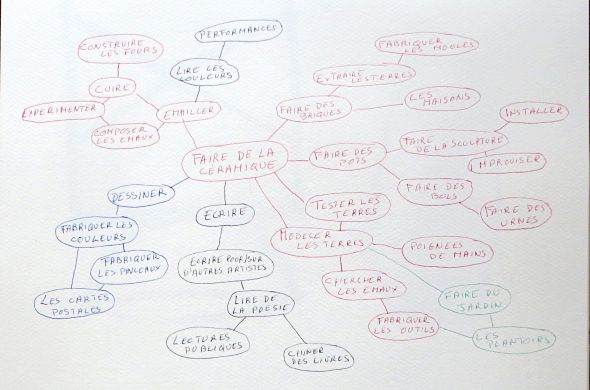 PERFORMANCES
CONSTRUIRE
LES FOURS
FABRIQUER
LES MOULES
LIRE LES
COULEURS
EXTRAIRE LES TERRES
CUIRE
LES
MAISONS
EXPERIMENTER
EMAILLER
FAIRE DES
BRIQUES
INSTALLER
COMPOSER
LES EMAUX
FAIRE
DE LA SCULPTURE
FAIRE DE LA
CERAMIQUE
FAIRE DES
POTS
IMPROVISER
DESSINER
FAIRE DES
BOLS
TESTER LES
TERRES
ECRIRE
FAIRE DES
URNES
FABRIQUER LES
COULEURS
MODELER
LES TERRES
POIGNEES
DE MAINS
FABRIQUER
LES PINCEAUX
ECRIRE POUR/SUR
D'AUTRES ARTISTES
CHERCHER
LES EMAUX
LES CARTES
POSTALES
LIRE DE
LA POESIE
FAIRE DU
JARDIN
FABRIQUER
LES OUTILS
LECTURES
PUBLIQUES
LES
PLANTOIRS
CHINER
DES LIVRES